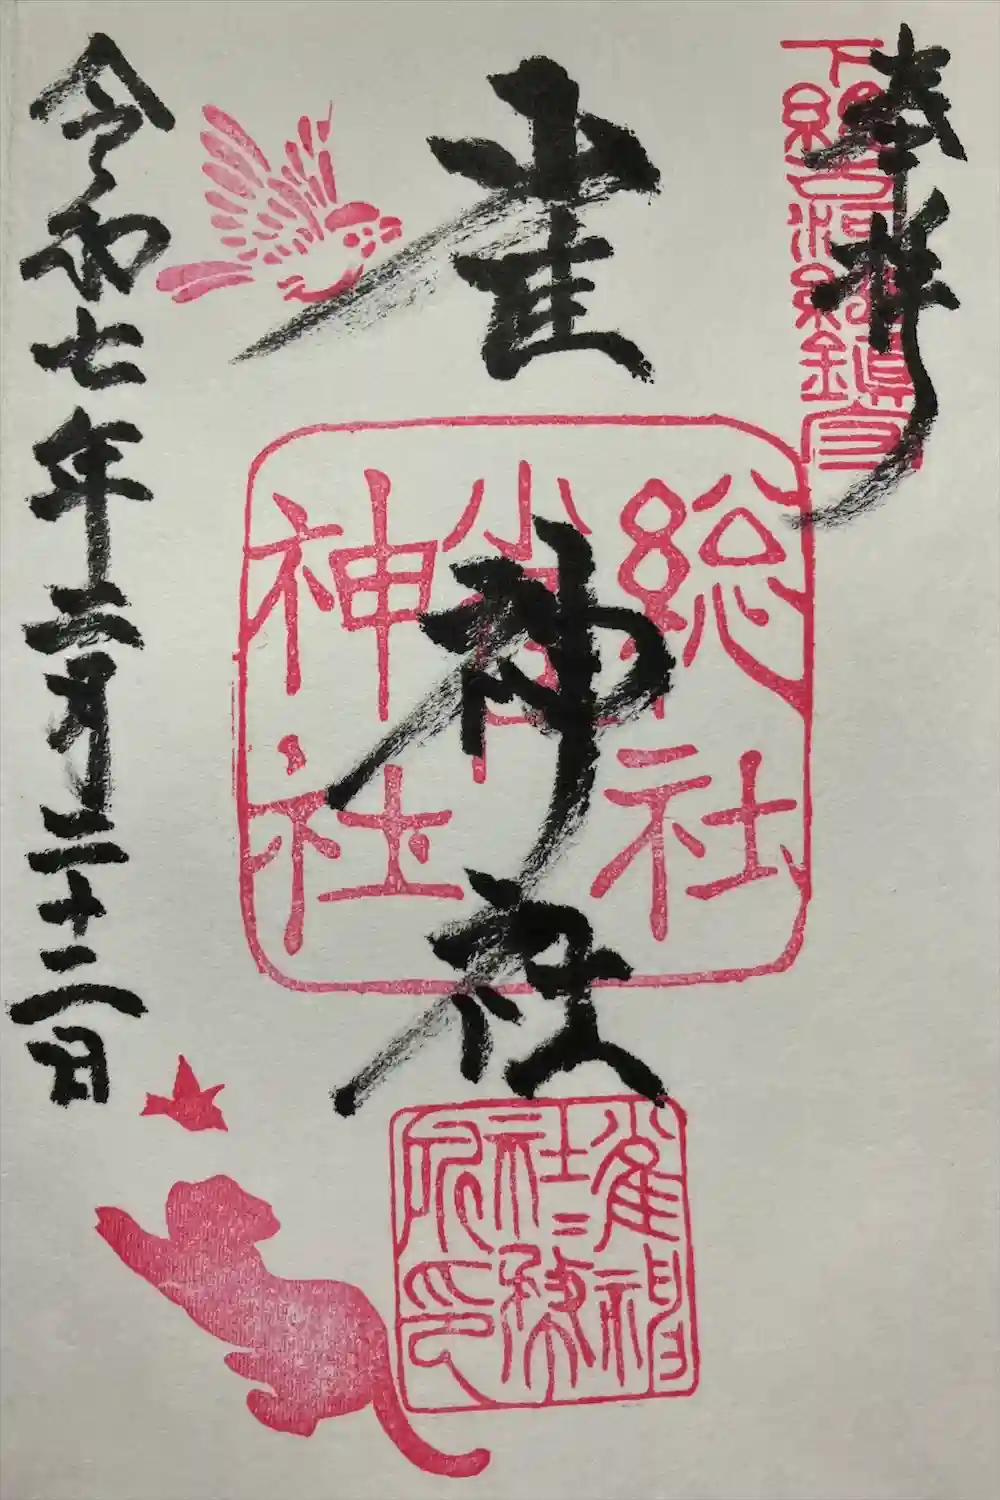 奉拝
下総古河総鎮守
雀神社
総社
雀
神社
雀神
社二務
所印
令和七年二月二十二日